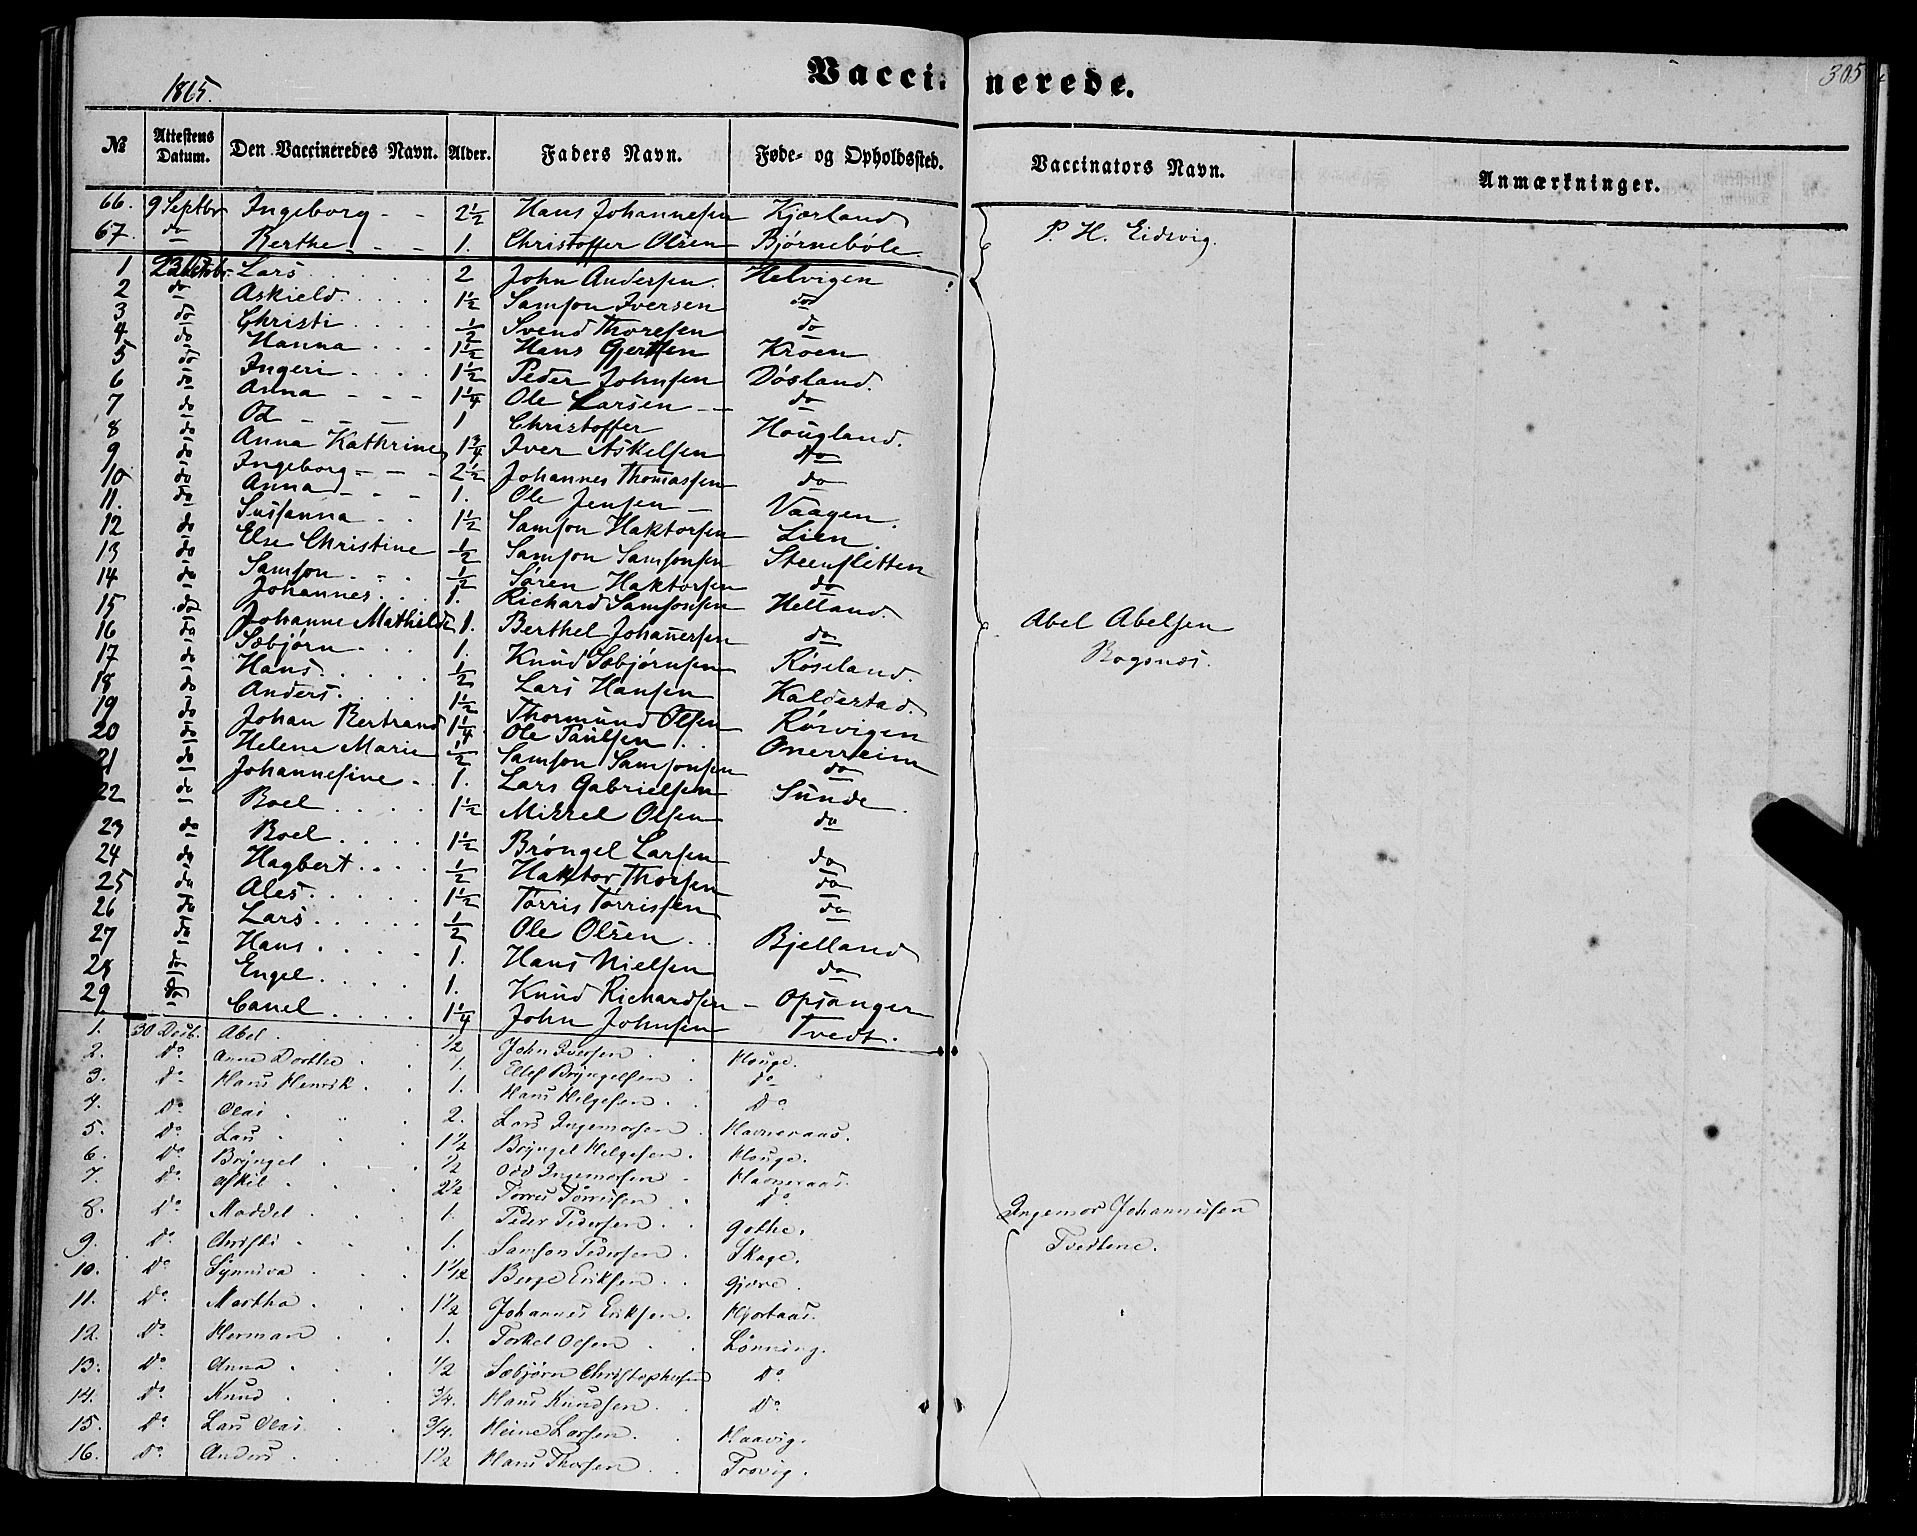 1865.
Vaccinerede.
305
№ Attestens Datum. Den Vaccineredes Navn. Alder. Faders Navn. Føde- og Opholdssted. Vaccinators Navn. Anmærkninger.
66. 9 Septbr Ingeborg - - 2½ Hans Johannesen Kjærland
67. do Berthe - - 1. Christoffer Olsen Bjørnebøle P. H. Eidsvig.
1 Lars 2 John Andersen. Helvigen
2 do Askield 1½ Samson Iversen do
3 do Christi ½ Svend Thoresen do
4 do Hanna 1½ Hans Gjertsen Kroen
5 do Ingeri 1½ Peder Johnsen Døsland.
6 do Anna 1¼ Ole Larsen do
7 do Od 1 Christoffer Hougland.
8 do Anna Kathrine 1¾ Iver Askelsen do
9 do Ingeborg 2½ Johannes Thomassen do
10 do Anna 1. Ole Jensen Vaagen.
11. do Sussanna 1½ Samson Haktorsen Lien
12 do Else Christine ½ Samson Samsonsen Steensletten
13 do Samson ½ Søren Haktorsen do
14 do Johannes 1. Richard Samsonsen Helland.
15 do Johanne Mathilde 1. Berthel Johannesen do Abel Abelsen
16 do Sæbjørn 1. Knud Sæbjørnsen Røseland. Bogsnæs.
17 do Hans ½ Lars Hansen Kaldestad.
18 do Anders 1½ Thormund Olsen Røsvigen
19 do Johan Bertrand 1¼ Ole Paulsen Onerreim
20 do Helene Marie ½ Samson Samsonsen do
21 do Johannesine 1. Lars Gabrielsen Sunde.
22 do Boel 1½ Mikkel Olsen do
23 do Boel 1½ Brøngel Larsen do
24 do Hagbert ½ Haktor Thorsen do
25 do Ales 1½ Tørris Tørrissen do
26 do Lars ½ Ole Olsen Bjelland
27 do Hans 1. Hans Nielsen do
28 do Engel 1. Knud Richardsen Opsanger
29 do Canel 1¼ John Johnsen Tvedt.
1. 30 Abel ½ John Iversen Houge.
2. Do Anne Dorthe 1. Ellef Brÿngelsen do
3. Do Hans Henrik 1. Hans Helgesen Do
4. Do Olai 2. Lars Ingemorsen Havneraas.
5. Do Lars 1½ Brÿngel Helgesen Houge.
6. Do Brÿngel ½ Odd Ingemorsen Havneraas.
7. Do Askil 2½ Tørres Tørressen Do
8. Do Maddel 1. Peder Pedersen Gothe. Ingemor Johannessen
9. Do Christi 1. Samson Pedersen Skage. Tveitene.
10. Do Synniva 1½ Berge Eriksen Gjære.
11. Do Martha 1½ Johannes Eriksen Hjortaas.
12. Do Herman 1. Torkel Olsen Lønning.
13. Do Anna ½ Sæbjørn Christophersen Do
14. Do Knud ¾. Hans Knudsen Do
15. Do Lars Olai ¾. Heine Larsen Haavig.
16. Do Anders 1½ Hans Thorsen Trovig.